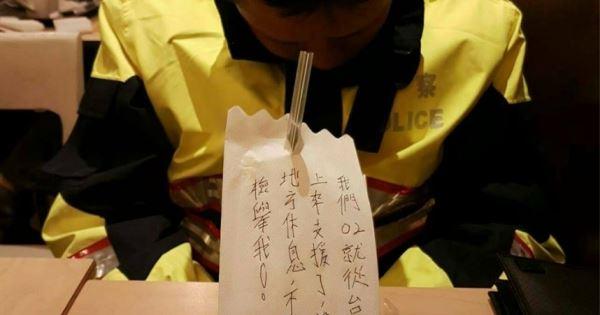 察
POLICE
我們02就從台
上來支援了,
地方休息,不
檢舉我!!